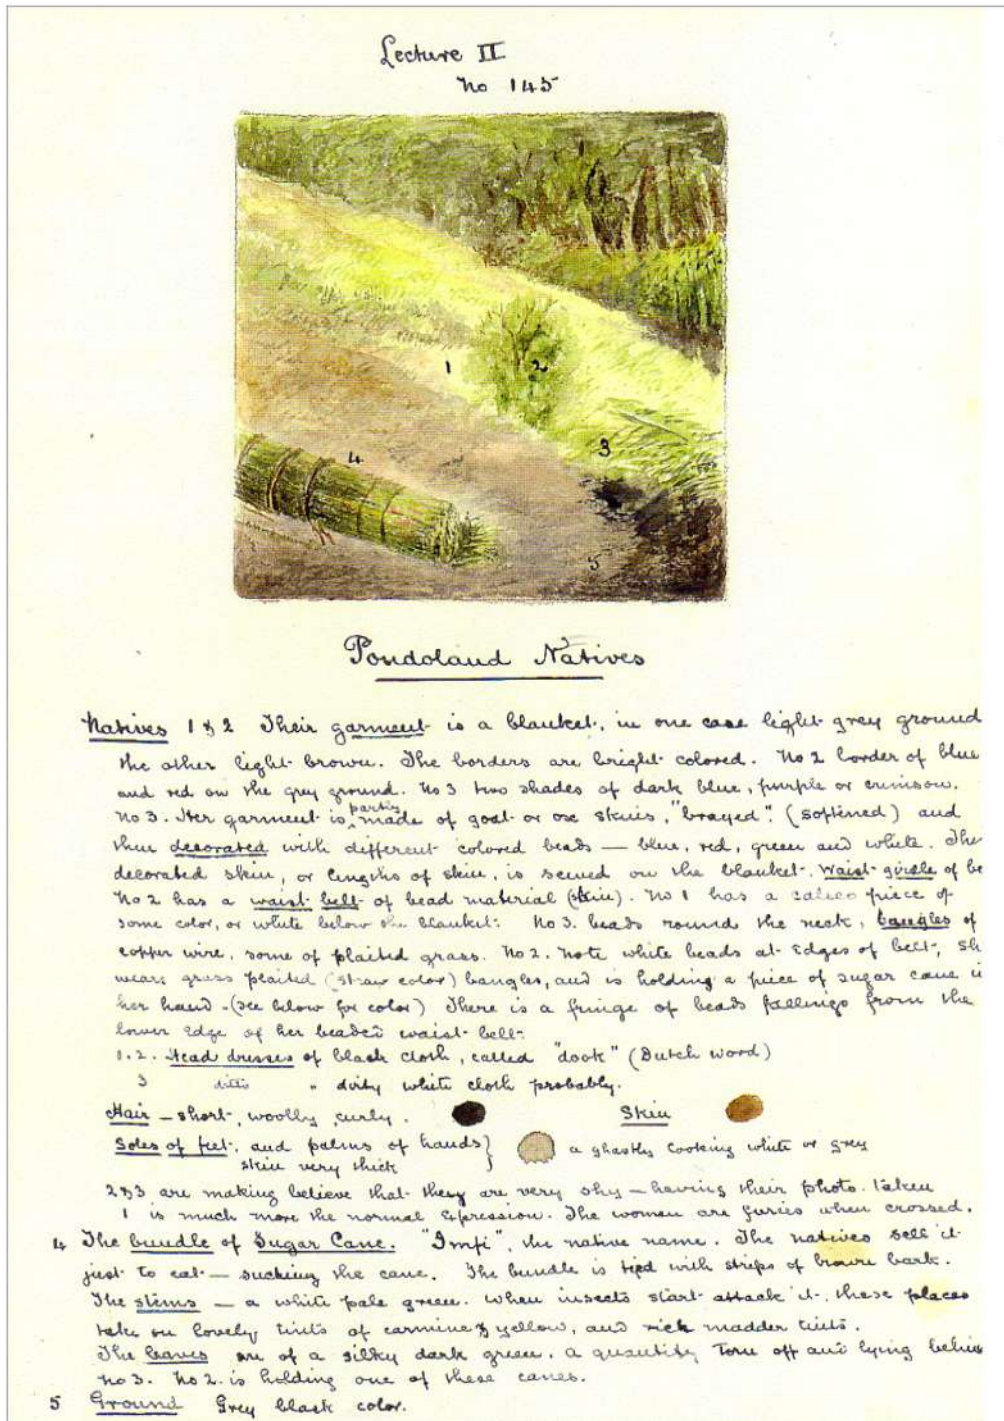 Lecture II
No 145
1
2
3
4
5
Pondoland Natives
Natives 1 & 2 Their garment is a blanket, in one case light grey ground
the other light brown. The borders are bright colored. No 2 border of blue
and red on the grey ground. No 3 two shades of dark blue, purple or crimson.
No 3. Her garment is partly made of goat or ox skins, "brayed", (softened) and
then decorated with different colored beads — blue, red, green and white. The
decorated skin, or lengths of skin, is sewed on the blanket. Waist girdle of be
No 2 has a waist belt of bead material (skin). No 1 has a calico piece of
some color, or white below the blanket. No 3. beads round the neck, bangles of
copper wire, some of plaited grass. No 2. Note white beads at edges of belt, sh
wears grass plaited (straw color) bangles, and is holding a piece of sugar cane i
her hand - (see below for color) There is a fringe of beads fallings from the
lower edge of her beaded waist belt.
1.2. Head dresses of black cloth, called "dook" (Dutch word)
3 ditto " dirty white cloth probably.
Hair — short, woolly, curly. Skin
Soles of feet, and palms of hands} a ghastly looking white or grey
skin very thick
2 & 3 are making believe that they are very shy — having their photo. taken
1 is much more the normal expression. The women are furies when crossed.
4 The bundle of Sugar Cane. "Imfi", the native name. The natives sell it
just to eat — sucking the cane. The bundle is tied with strips of brown bark.
The stems — a white pale green. When insects start attack it, these places
take on lovely tints of carmine & yellow, and rich madder tints.
The leaves are of a silky dark green. A quantity torn off and lying behin
No 3. No 2. is holding one of these canes.
5 Ground Grey black color.